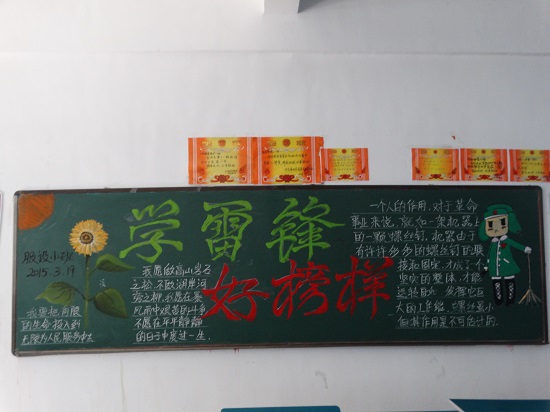 学雷锋
好榜样
服设小班
2015.3.19
我要把有限
的生命投入到
无限为人民服务中去
我愿做高山岩石
之松,不做湖岸河
旁之柳,我愿在暴
风雨中艰苦的斗争
不愿在平平静静
的日子中度过一生.
一个人的作用,对于革命
事业来说,就如一架机器上
的一颗螺丝钉,机器由于
有许许多多的螺丝钉的联
接和固定,才成了
的整体,才能
运转自如,发挥它巨
大的工作能,螺丝钉虽小
但其作用是不可估计的.